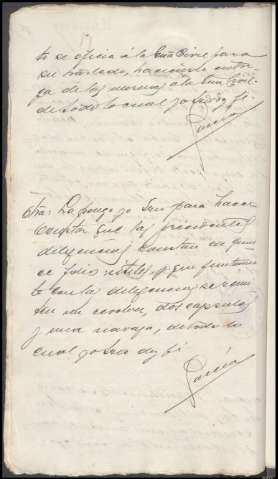 to se oficia á la Gua Civil para
su traslado, haciendo entre-
ga de las mismas á la Gua Civil
de todo lo cual yo Srio doy fé
García
Otra: La pongo yo Srio para hacer
constar que las precedentes
diligencias constan de quin
ce folios utiles y que juntamen
te con las diligencias se remi
ten un revolver, dos capsulas
y una navaja, de todo lo
cual yo Srio doy fé
García